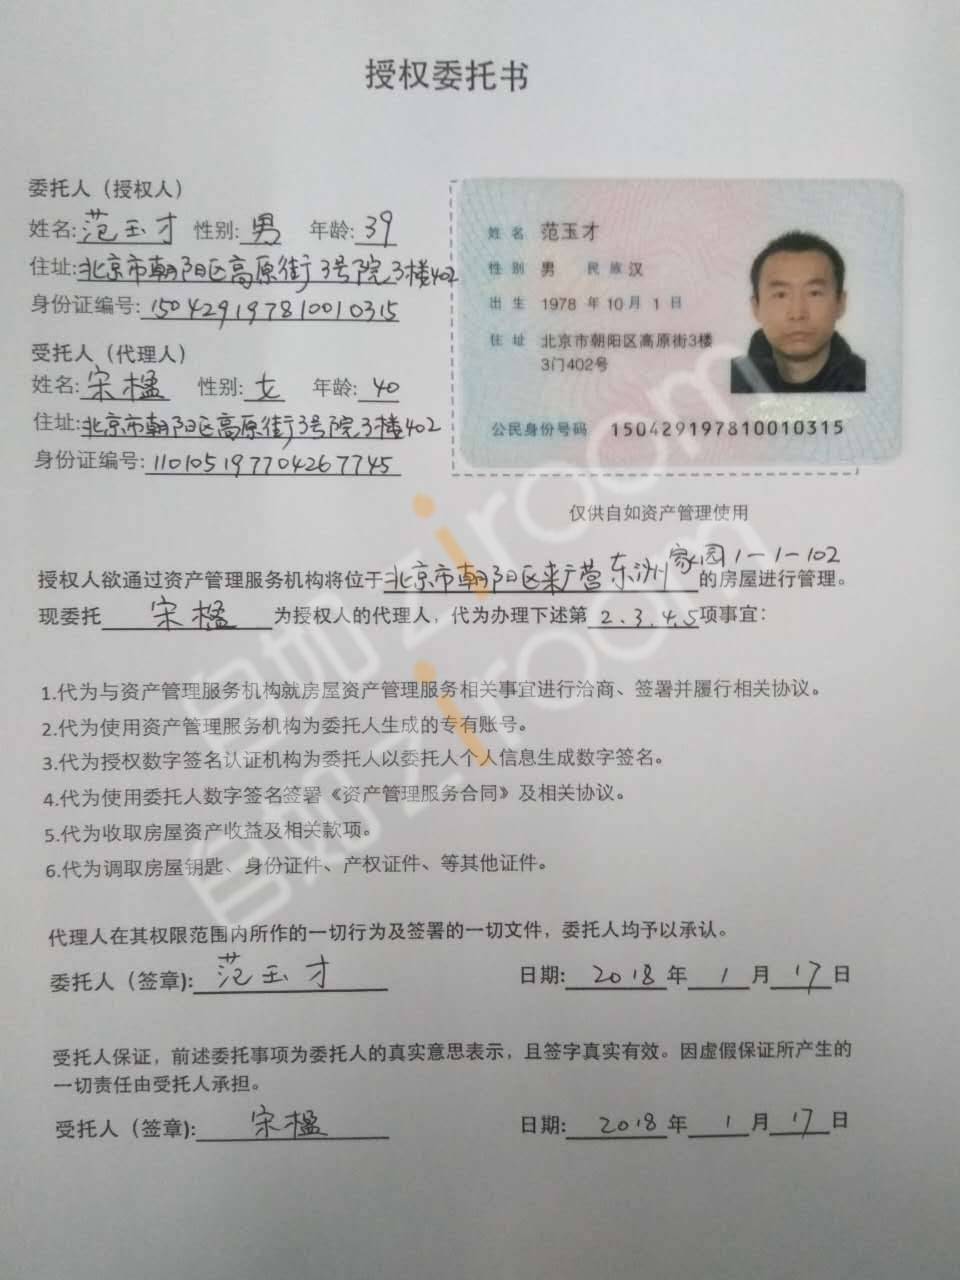 授权委托书
委托人（授权人）
姓名:范玉才 性别:男 年龄:39
住址:北京市朝阳区高原街3号院3楼402
身份证编号:150429197810010315
受托人（代理人）
姓名:宋楹 性别:女 年龄:40
住址:北京市朝阳区高原街3号院3楼402
身份证编号:110105197704267745
姓名 范玉才
性别 男 民族 汉
出生 1978 年 10 月 1 日
住址 北京市朝阳区高原街3楼
3门402号
公民身份号码 150429197810010315
仅供自如资产管理使用
授权人欲通过资产管理服务机构将位于北京市朝阳区来广营东洲家园1-1-102的房屋进行管理。
现委托 宋楹 为授权人的代理人，代为办理下述第2.3.4.5项事宜：
1.代为与资产管理服务机构就房屋资产管理服务相关事宜进行洽商、签署并履行相关协议。
2.代为使用资产管理服务机构为委托人生成的专有账号。
3.代为授权数字签名认证机构为委托人以委托人个人信息生成数字签名。
4.代为使用委托人数字签名签署《资产管理服务合同》及相关协议。
5.代为收取房屋资产收益及相关款项。
6.代为调取房屋钥匙、身份证件、产权证件、等其他证件。
代理人在其权限范围内所作的一切行为及签署的一切文件，委托人均予以承认。
委托人（签章):范玉才 日期:2018年1月17日
受托人保证，前述委托事项为委托人的真实意思表示，且签字真实有效。因虚假保证所产生的
一切责任由受托人承担。
受托人（签章):宋楹 日期:2018年1月17日
自如 ziroom
自如 ziroom